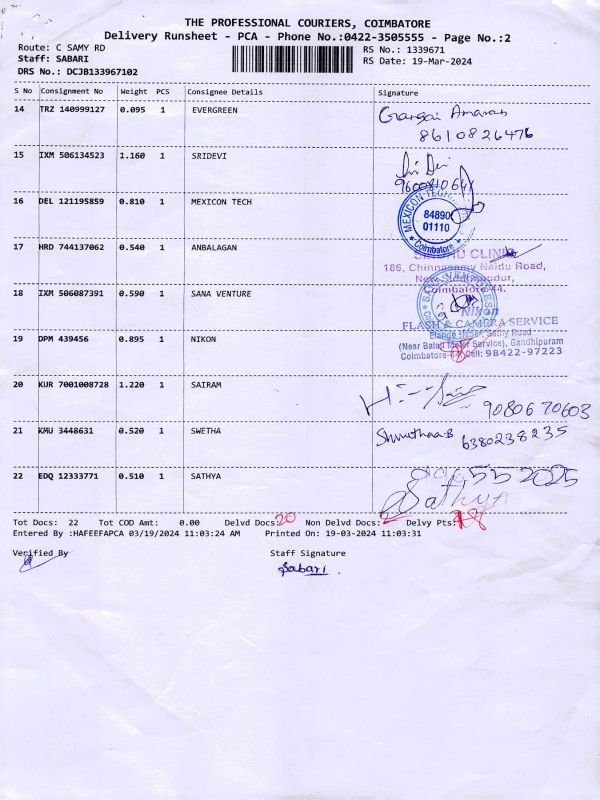 THE PROFESSIONAL COURIERS, COIMBATORE
Delivery Runsheet - PCA - Phone No.:0422-3505555 - Page No.:2
Route: C SAMY RD RS No.: 1339671
Staff: SABARI RS Date: 19-Mar-2024
DRS No.: DCJB133967102
S No Consignment No Weight PCS Consignee Details Signature
14 TRZ 140999127 0.095 1 EVERGREEN
8610826476
15 IXM 506134523 1.160 1 SRIDEVI
Sri Devi
16 DEL 121195859 0.810 1 MEXICON TECH
MEXICON TECH
84890
01110
Coimbatore
17 HRD 744137062 0.540 1 ANBALAGAN
CLINIC
186, Chinnasamy Naidu Road,
New Siddhapudur,
Coimbatore-44.
18 IXM 506087391 0.590 1 SANA VENTURE
Nikon
FLASH & CAMERA SERVICE
19 DPM 439456 0.895 1 NIKON
Road
(Near Balaji Motor Service), Gandhipuram
Coimbatore-44. Cell: 98422-97223
20 KUR 7001008728 1.220 1 SAIRAM
9080670603
21 KMU 3448631 0.520 1 SWETHA
6380238235
22 EDQ 12333771 0.510 1 SATHYA
Sathya
Tot Docs: 22 Tot COD Amt: 0.00 Delvd Docs: 20 Non Delvd Docs: 2 Delvy Pts: 18
Entered By :HAFEEFAPCA 03/19/2024 11:03:24 AM Printed On: 19-03-2024 11:03:31
Verified By Staff Signature
Sabari.